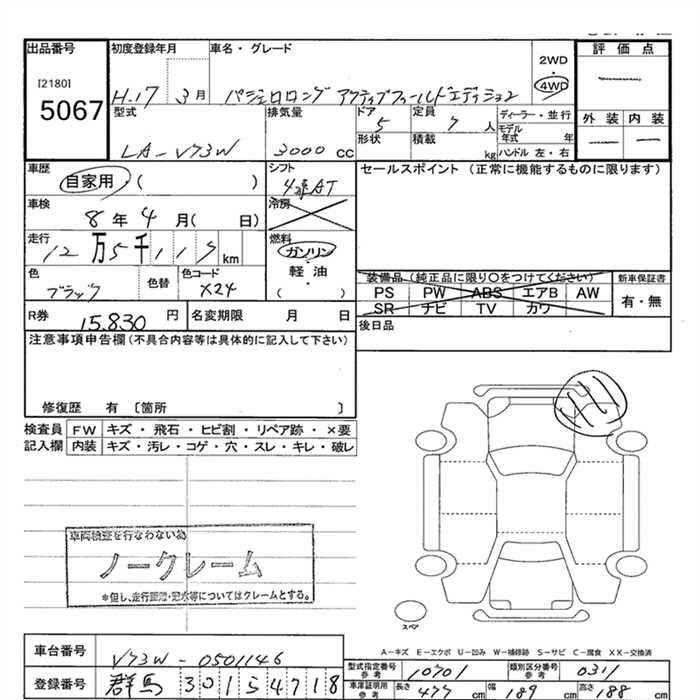 出品番号 初度登録年月 車名・グレード 2WD ・ 4WD 評価点
[2180]
5067
H.17 3月 パジェロロング アクティブフィールドエディション
外装 内装
型式 排気量 ドア 定員 ディーラー・並行
LA-V73W 3000 CC 5 7人 モデル年式 年
形状 積載 kg ハンドル 左・右
車歴 シフト セールスポイント (正常に機能するものに限ります)
自家用 ( ) 4速AT
車検 冷房
8年4月( 日)
走行 燃料
12万5千119km ガソリン・軽油・( )
色 色替 色コード
ブラック X24
装備品(純正品に限り○をつけてください) 新車保証書
PS PW ABS エアB AW 有・無
SR ナビ TV カワ
R券 15.830円 名変期限 月 日
後日品
注意事項申告欄(不具合内容等は具体的に記入して下さい)
修復歴 有 〔箇所 〕
検査員記入欄 FW キズ・飛石・ヒビ割・リペア跡・×要
内装 キズ・汚レ・コゲ・穴・スレ・キレ・破レ
車両検査を行なわない為
ノークレーム
*但し、走行距離・冠水等についてはクレームとする。
スペア
A-キズ E-エクボ U-凹み W-補修跡 S-サビ C-腐食 XX-交換済
車台番号 V73W-0501146
型式指定番号 参考 10701 類別区分番号 参考 0311
登録番号 群馬 301 そ 4718
車庫証明用 参考 長さ 477cm 幅 189cm 高さ 188cm